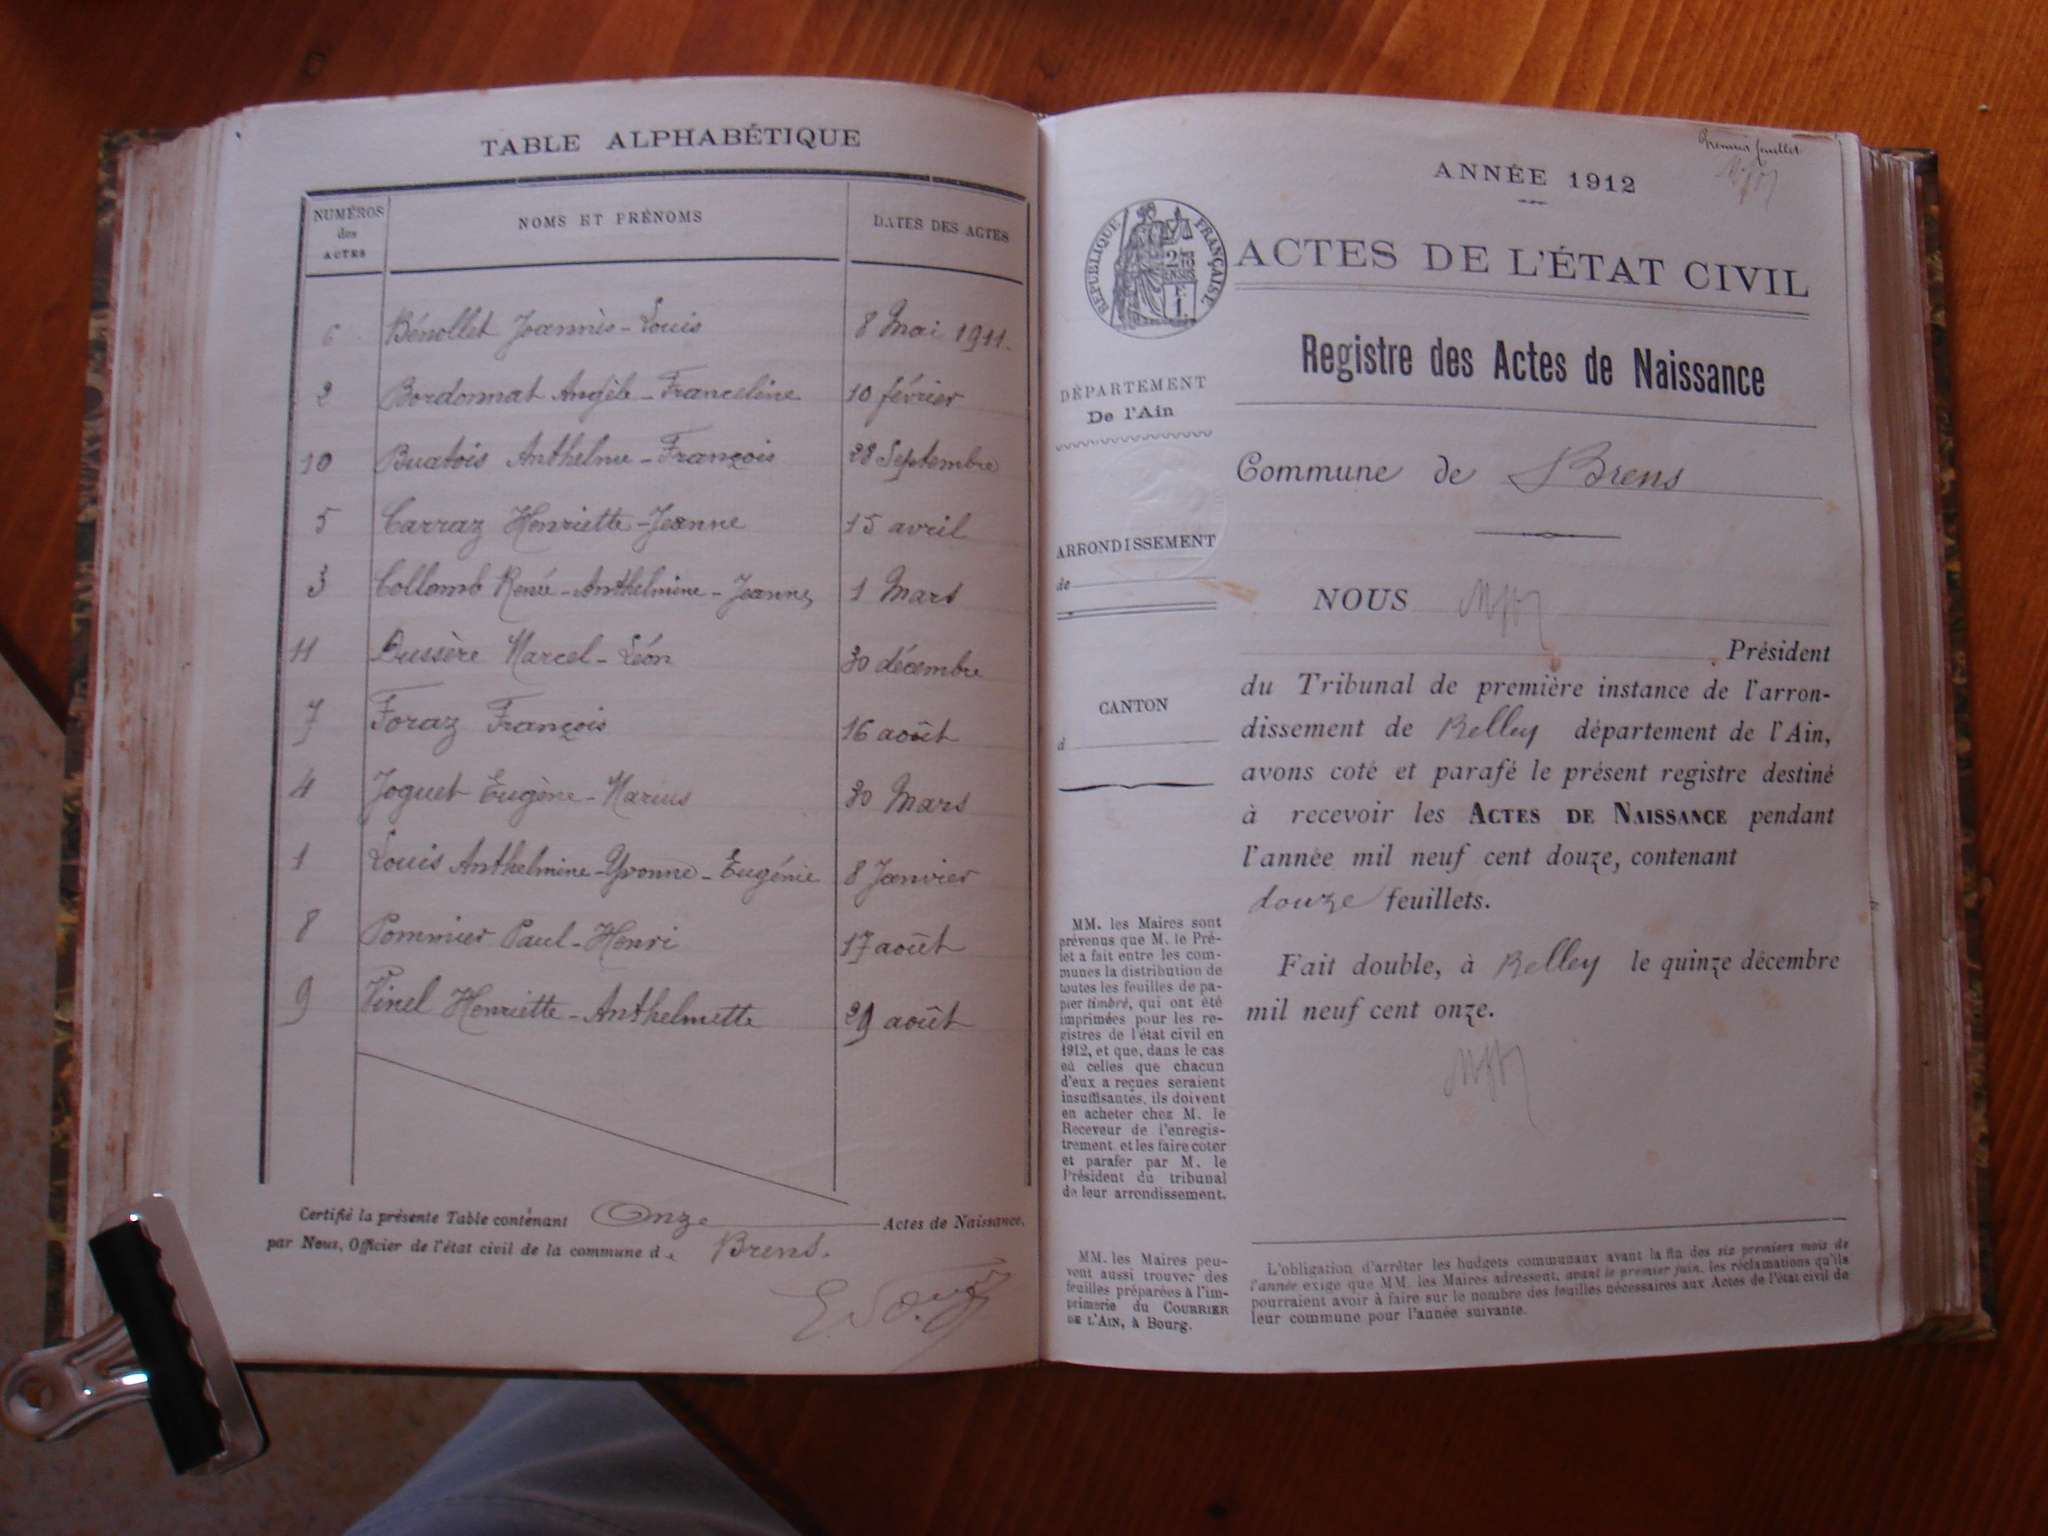 TABLE ALPHABÉTIQUE
NUMÉROS des ACTES
NOMS ET PRÉNOMS
DATES DES ACTES
6 Bénollet Joannès-Louis 8 Mai 1911.
2 Bordonnat Angèle-Franceline 10 février
10 Buatois Anthelme-François 28 Septembre
5 Carraz Henriette-Jeanne 15 avril
3 Collomb Renée-Anthelmine-Jeanne 1 Mars
11 Dussère Marcel-Léon 30 décembre
7 Foraz François 16 août
4 Joguet Eugène-Marius 30 Mars
1 Louis Anthelmine-Yvonne-Eugénie 8 Janvier
8 Pommier Paul-Henri 17 août
9 Vinel Henriette-Anthelmette 29 août
Certifié la présente Table contenant Onze Actes de Naissance.
par Nous, Officier de l'état civil de la commune de Brens.
Premier feuillet
ANNÉE 1912
RÉPUBLIQUE FRANÇAISE
ACTES DE L'ÉTAT CIVIL
Registre des Actes de Naissance
DÉPARTEMENT
De l'Ain
Commune de Brens
ARRONDISSEMENT
de
NOUS
Président
CANTON
d
du Tribunal de première instance de l'arron-
dissement de Belley département de l'Ain,
avons coté et parafé le présent registre destiné
à recevoir les ACTES DE NAISSANCE pendant
l'année mil neuf cent douze, contenant
douze feuillets.
Fait double, à Belley le quinze décembre
mil neuf cent onze.
MM. les Maires sont
prévenus que M. le Pré-
fet a fait entre les com-
munes la distribution de
toutes les feuilles de pa-
pier timbré, qui ont été
imprimées pour les re-
gistres de l'état civil en
1912, et que, dans le cas
où celles que chacun
d'eux a reçues seraient
insuffisantes, ils doivent
en acheter chez M. le
Receveur de l'enregis-
trement et les faire coter
et parafer par M. le
Président du tribunal
de leur arrondissement.
MM. les Maires peu-
vent aussi trouver des
feuilles préparées à l'im-
primerie du COURRIER
DE L'AIN, à Bourg.
L'obligation d'arrêter les budgets communaux avant la fin des six premiers mois de
l'année exige que MM. les Maires adressent, avant le premier juin, les réclamations qu'ils
pourraient avoir à faire sur le nombre des feuilles nécessaires aux Actes de l'état civil de
leur commune pour l'année suivante.